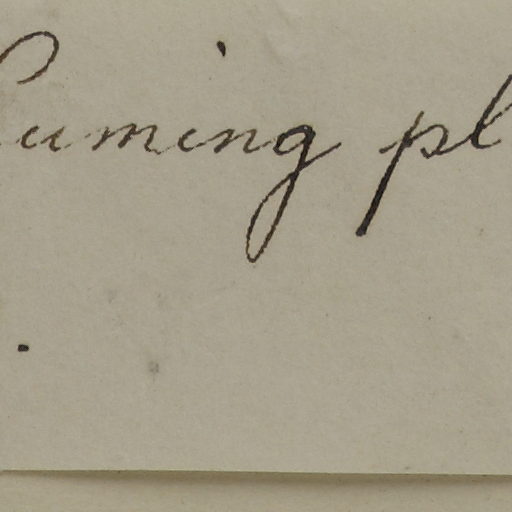 Cuming pl
.